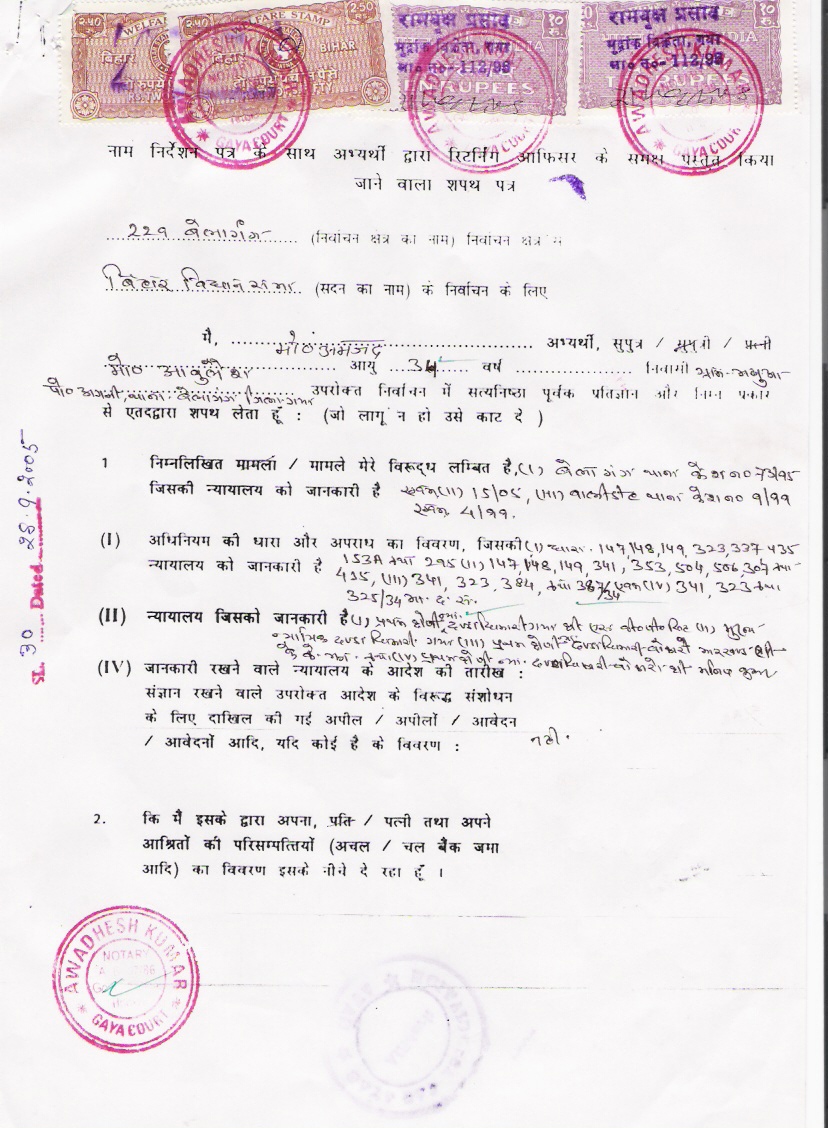 २.५० WELFARE STAMP 2.50
बिहार BIHAR
रामबृक्ष प्रसाद
मुद्रांक विक्रेता, गया
ला० नं०- 112/98
१० रु.
TEN RUPEES
रामबृक्ष प्रसाद
मुद्रांक विक्रेता, गया
ला० नं०- 112/98
INDIA
१० रु.
TEN RUPEES
AWADHESH KUMAR
NOTARY
GAYA COURT
AWADHESH KUMAR
GAYA COURT
AWADHESH KUMAR
GAYA COURT
नाम निर्देशन पत्र के साथ अभ्यर्थी द्वारा रिटर्निंग आफिसर के समक्ष प्रस्तुत किया
जाने वाला शपथ पत्र
229 बेलागंज (निर्वाचन क्षेत्र का नाम) निर्वाचन क्षेत्र से
बिहार विधान सभा (सदन का नाम) के निर्वाचन के लिए
मै, मो० अमजद अभ्यर्थी, सुपुत्र / सुपुत्री / पत्नी
मो० आयु 34 वर्ष निवासी ग्राम-
पो० थाना- बेलागंज जिला-गया उपरोक्त निर्वाचन में सत्यनिष्ठा पूर्वक प्रतिज्ञान और निम्न प्रकार
से एतदद्वारा शपथ लेता हूँ : (जो लागू न हो उसे काट दे )
SL. 30 Dated 28.9.2005
1 निम्नलिखित मामलों / मामले मेरे विरूद्ध लम्बित है, (I) बेलागंज थाना केश न० 73/95
जिसकी न्यायालय को जानकारी है एवम (II) 15/05, (III) थाना केश न० 9/99
एवम 4/99.
(I) अधिनियम की धारा और अपराध का विवरण, जिसकी (I) धारा. 147,148,149, 323,337 435
न्यायालय को जानकारी है 153A तथा 295 (II) 147,148,149, 341, 353, 504, 506, 307 तथा
435, (III) 341, 323, 384, तथा 387/34 एवम (IV) 341, 323 तथा
325/34 भा. द. सं.
(II) न्यायालय जिसको जानकारी है (I) प्रथम श्रेणी न्या. दण्डाधिकारी गया श्री (II) मुख्य
न्यायिक दण्डाधिकारी गया (III) प्रथम श्रेणी न्या. दण्डाधिकारी श्री
तथा (IV) प्रथम श्रेणी न्या. दण्डाधिकारी श्री
(IV) जानकारी रखने वाले न्यायालय के आदेश की तारीख :
संज्ञान रखने वाले उपरोक्त आदेश के विरूद्ध संशोधन
के लिए दाखिल की गई अपील / अपीलों / आवेदन
/ आवेदनों आदि, यदि कोई है के विवरण : नही.
2. कि मैं इसके द्वारा अपना, प्रति / पत्नी तथा अपने
आश्रितों की परिसम्पत्तियों (अचल / चल बैंक जमा
आदि) का विवरण इसके नीचे दे रहा हूँ ।
AWADHESH KUMAR
NOTARY
GAYA COURT